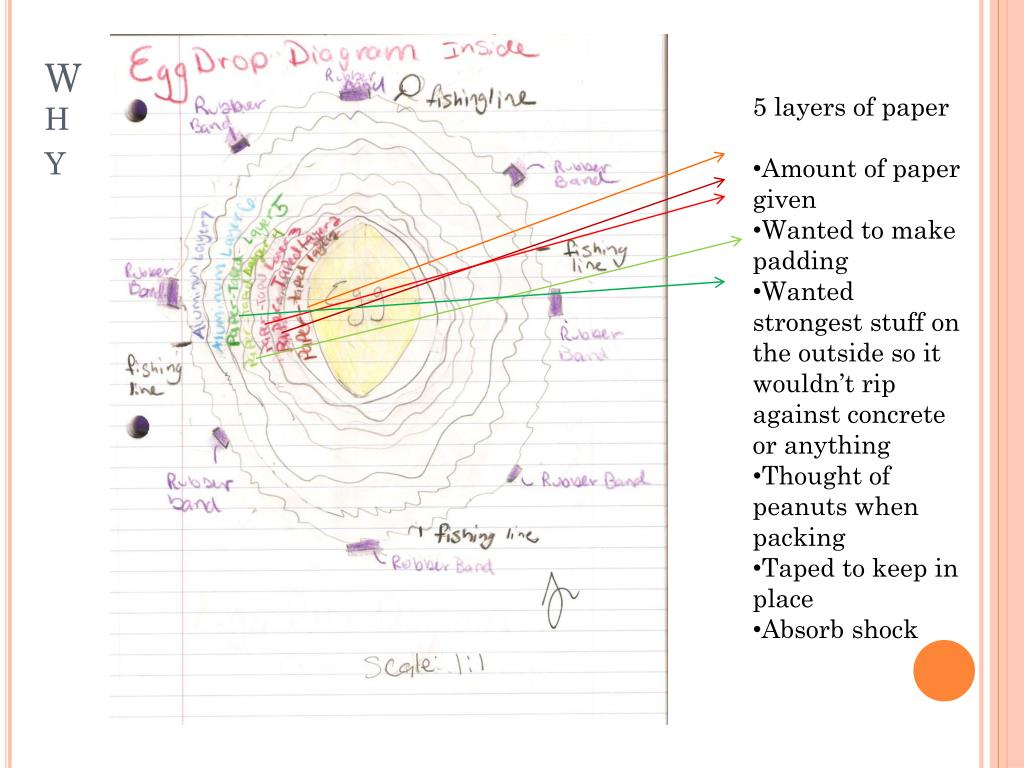 W
H
Y
Egg Drop Diagram Inside
Rubber
Band
fishingline
Rubber
Band
Rubber
Band
fishing
line
Rubber
Band
Rubber
Band
fishing
line
Rubber
band
Rubber Band
fishing line
Rubber Band
Aluminum Layer 7
Aluminum Layer 6
Paper-Taped Layer 5
Paper-Taped Layer 4
Paper-Taped Layer 3
Paper-Taped Layer 2
Paper-taped layer
egg
Scale: 1:1
5 layers of paper
•Amount of paper
given
•Wanted to make
padding
•Wanted
strongest stuff on
the outside so it
wouldn’t rip
against concrete
or anything
•Thought of
peanuts when
packing
•Taped to keep in
place
•Absorb shock